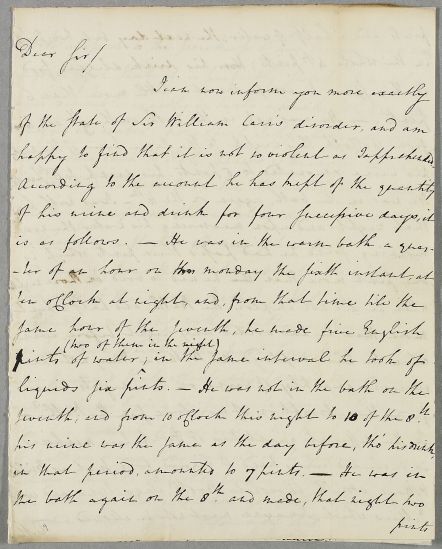 Dear Sir/
I can now inform you more exactly
of the State of Sir William Carr's disorder, and am
happy to find that it is not so violent as I apprehended
According to the account he has kept of the quantity
of his urine and drink for four successive days, it
is as follows. — He was in the warm bath a quar-
-ter of an hour on monday the sixth instant, at
ten oClock at night, and, from that time till the
same hour of the seventh, he made five English
(two of them in the night)
pints of water; in the same interval he took of
liquids six pints. — He was not in the bath on the
seventh, and from 10 oClock this night to 10 of the 8.th
his urine was the same as the day before, tho' his drink,
in that period, amounted to 7 pints. — He was in
the bath again on the 8.th and made, that night two
pints